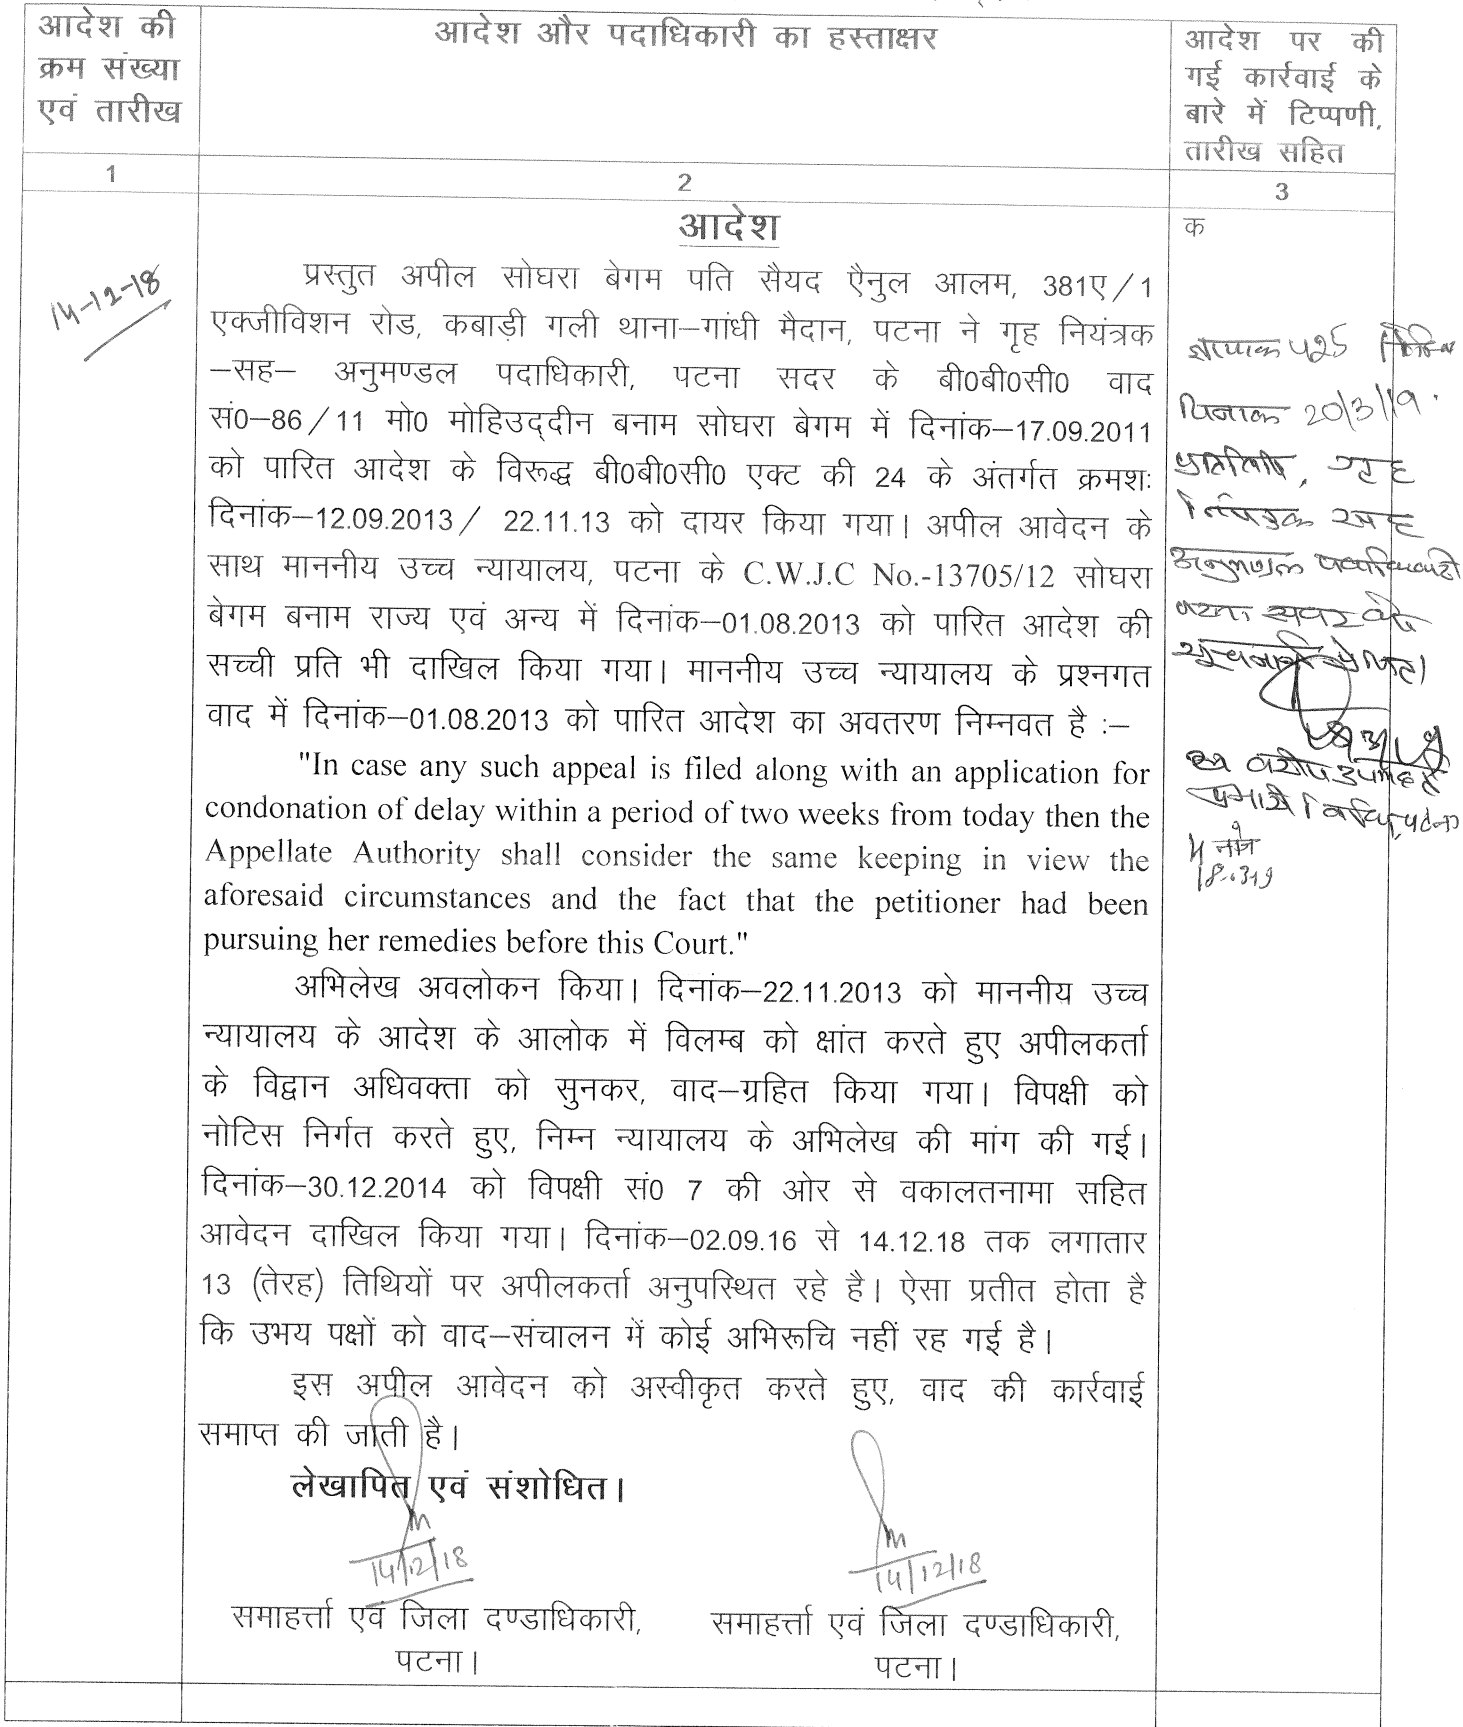 आदेश की
क्रम संख्या
एवं तारीख
आदेश और पदाधिकारी का हस्ताक्षर
आदेश पर की
गई कार्रवाई के
बारे में टिप्पणी,
तारीख सहित
1
2
3
14-12-18
आदेश
प्रस्तुत अपील सोघरा बेगम पति सैयद ऐनुल आलम, 381ए/1
एक्जीविशन रोड, कबाड़ी गली थाना–गांधी मैदान, पटना ने गृह नियंत्रक
–सह– अनुमण्डल पदाधिकारी, पटना सदर के बी0बी0सी0 वाद
सं0–86/11 मो0 मोहिउद्दीन बनाम सोघरा बेगम में दिनांक–17.09.2011
को पारित आदेश के विरूद्ध बी0बी0सी0 एक्ट की 24 के अंतर्गत क्रमशः
दिनांक–12.09.2013/ 22.11.13 को दायर किया गया। अपील आवेदन के
साथ माननीय उच्च न्यायालय, पटना के C.W.J.C No.-13705/12 सोघरा
बेगम बनाम राज्य एवं अन्य में दिनांक–01.08.2013 को पारित आदेश की
सच्ची प्रति भी दाखिल किया गया। माननीय उच्च न्यायालय के प्रश्नगत
वाद में दिनांक–01.08.2013 को पारित आदेश का अवतरण निम्नवत है :–
"In case any such appeal is filed along with an application for
condonation of delay within a period of two weeks from today then the
Appellate Authority shall consider the same keeping in view the
aforesaid circumstances and the fact that the petitioner had been
pursuing her remedies before this Court."
अभिलेख अवलोकन किया। दिनांक–22.11.2013 को माननीय उच्च
न्यायालय के आदेश के आलोक में विलम्ब को क्षांत करते हुए अपीलकर्ता
के विद्वान अधिवक्ता को सुनकर, वाद–ग्रहित किया गया। विपक्षी को
नोटिस निर्गत करते हुए, निम्न न्यायालय के अभिलेख की मांग की गई।
दिनांक–30.12.2014 को विपक्षी सं0 7 की ओर से वकालतनामा सहित
आवेदन दाखिल किया गया। दिनांक–02.09.16 से 14.12.18 तक लगातार
13 (तेरह) तिथियों पर अपीलकर्ता अनुपस्थित रहे है। ऐसा प्रतीत होता है
कि उभय पक्षों को वाद–संचालन में कोई अभिरूचि नहीं रह गई है।
इस अपील आवेदन को अस्वीकृत करते हुए, वाद की कार्रवाई
समाप्त की जाती है।
लेखापित एवं संशोधित।
14/12/18
14/12/18
समाहर्त्ता एवं जिला दण्डाधिकारी,
पटना।
समाहर्त्ता एवं जिला दण्डाधिकारी,
पटना।
क
ज्ञापांक 425
दिनांक 20/3/19.
प्रतिलिपि, गृह
नियंत्रक सह
अनुमण्डल पदाधिकारी
पटना सदर को